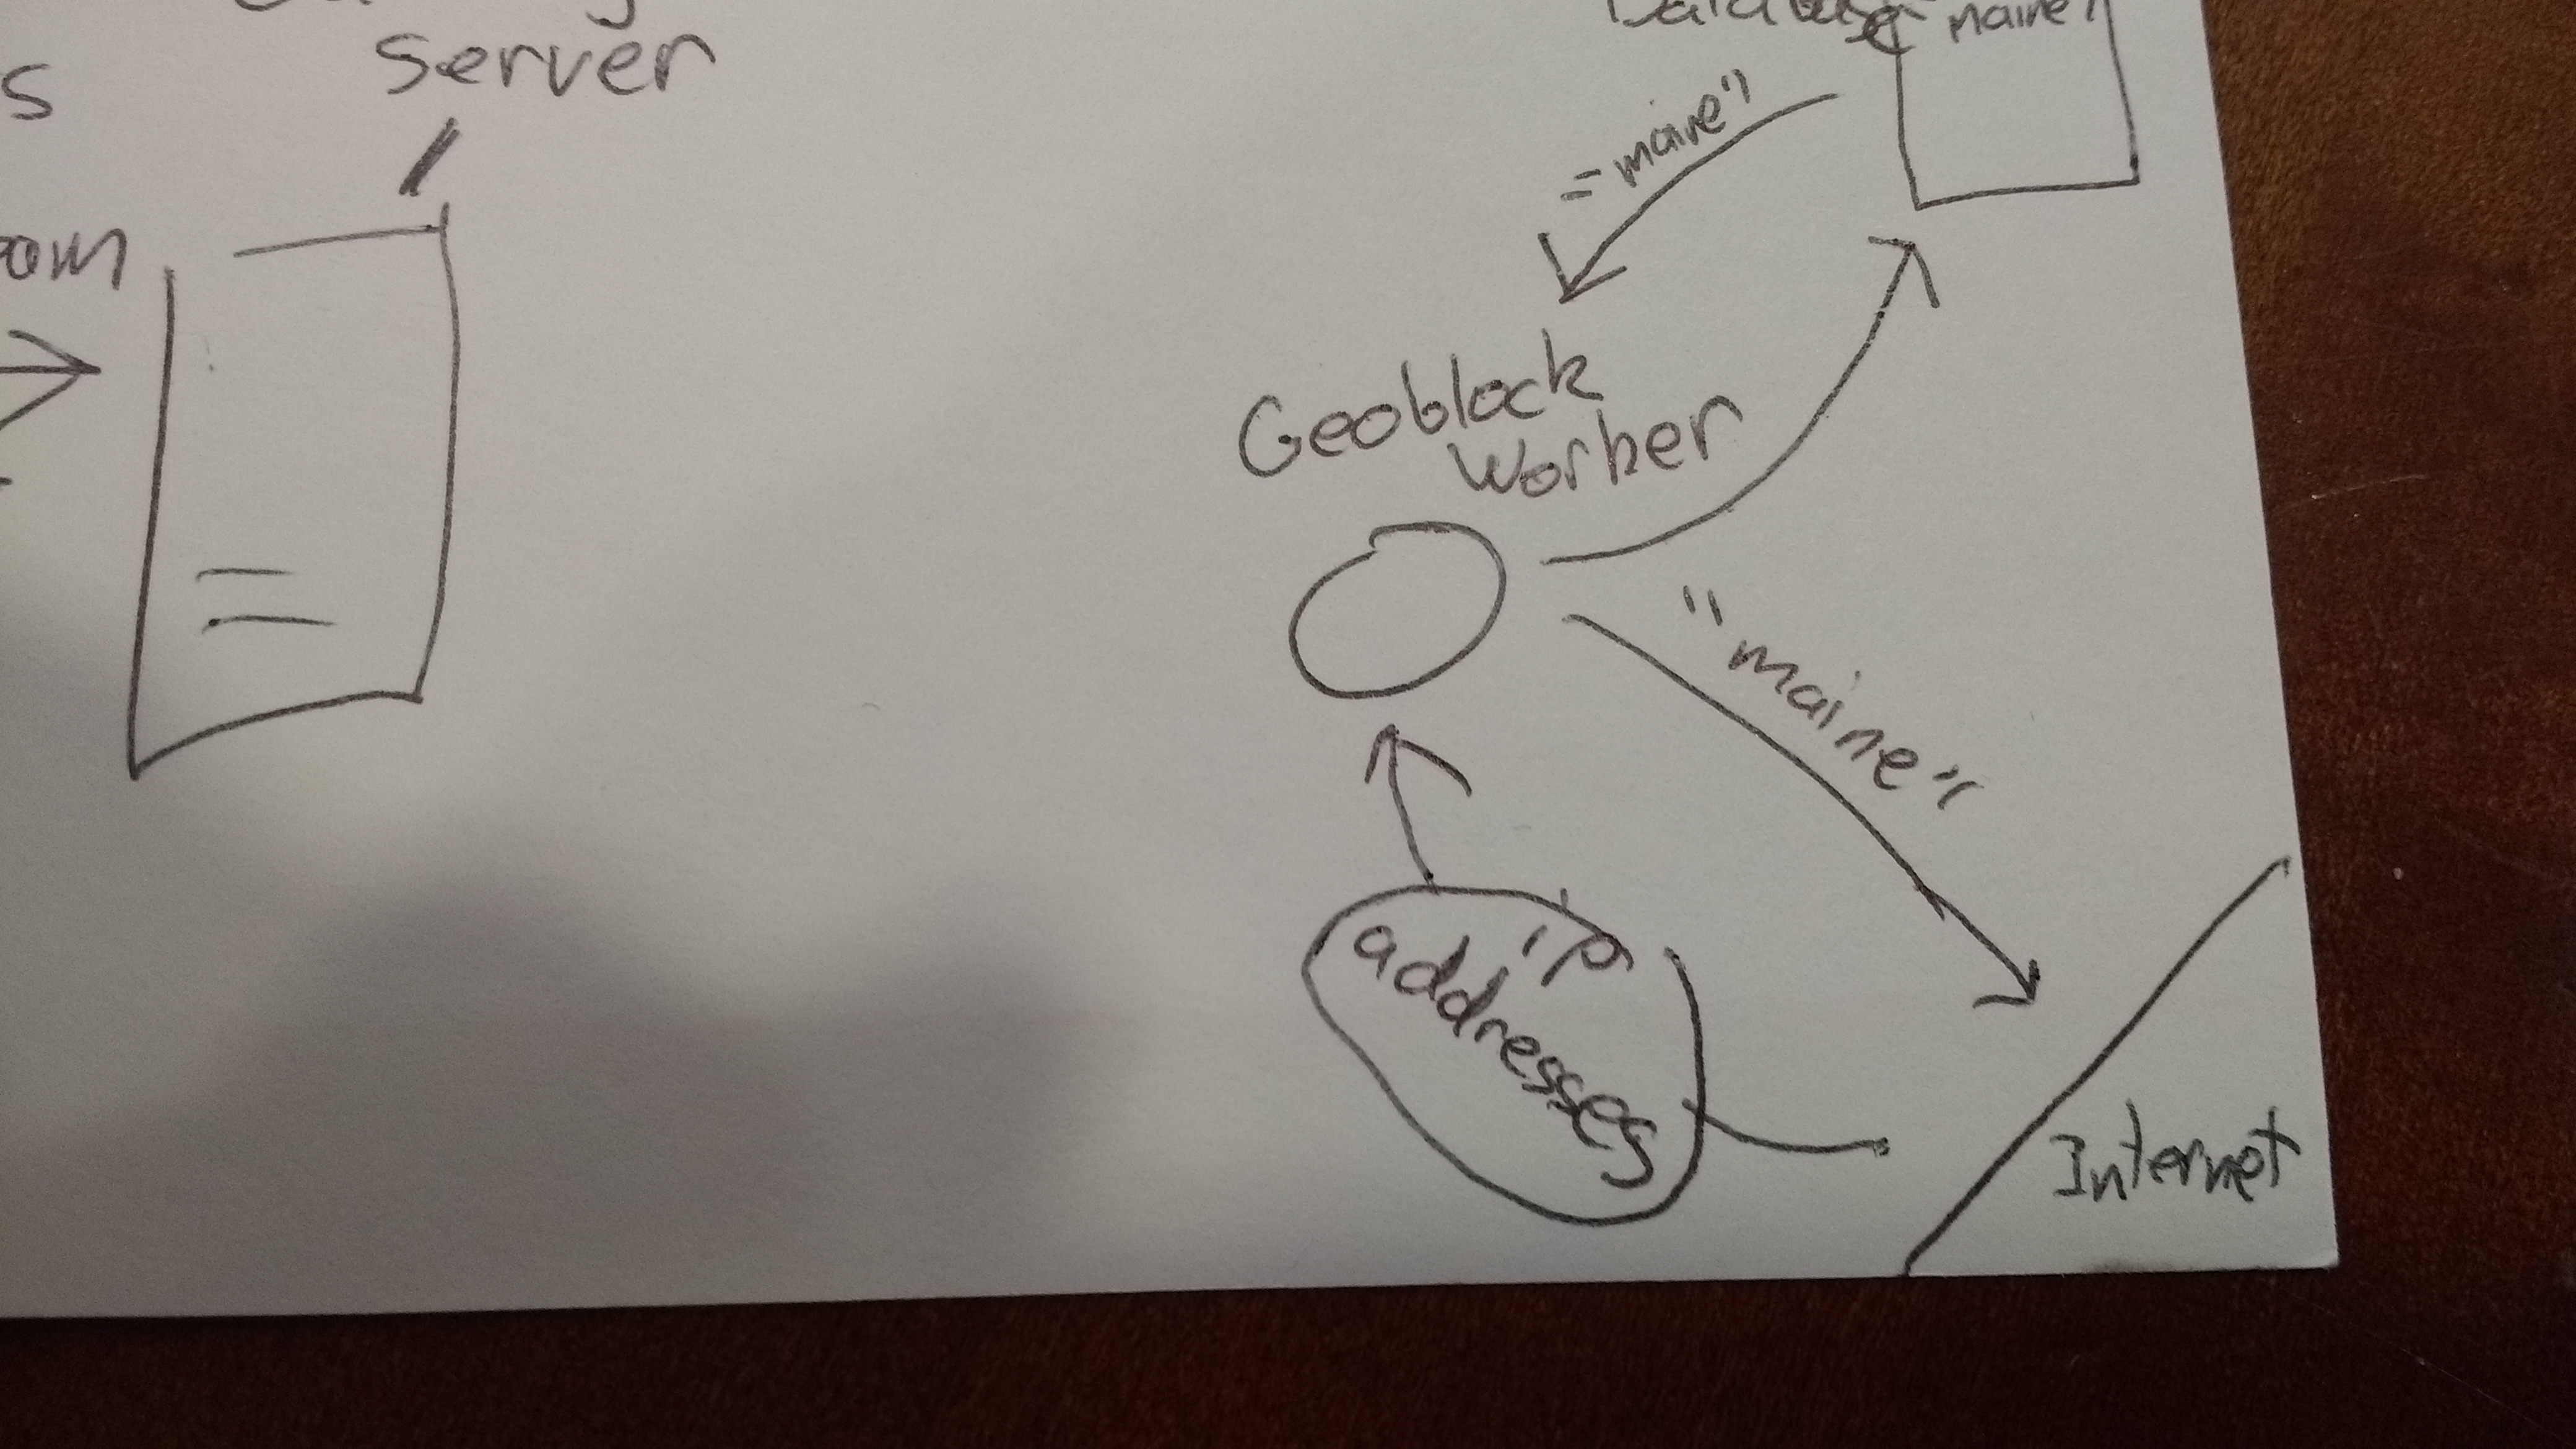 Server
s
Database
"maine"
Geoblock
Worker
"maine"
ip
addresses
Internet